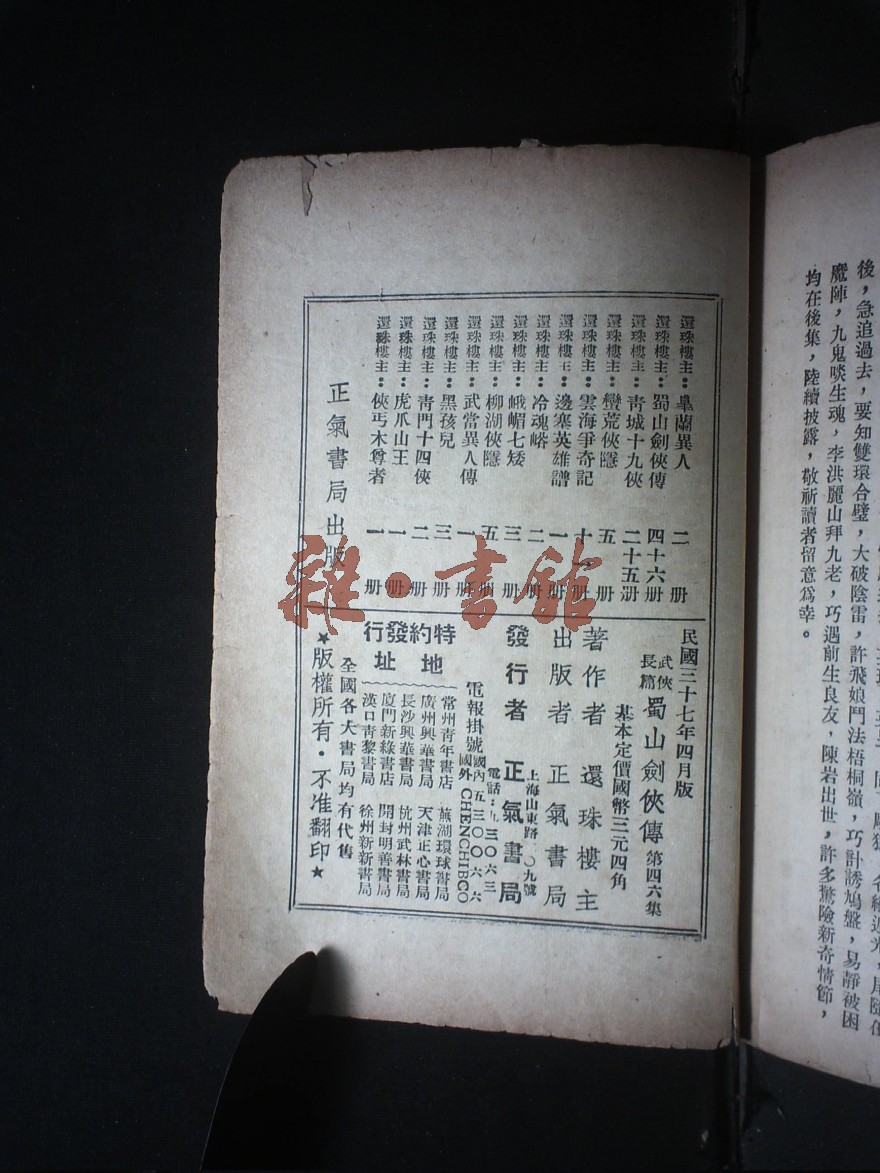 後，急追過去，要知雙環合璧，大破陰雷，許飛娘鬥法梧桐嶺，巧計誘鳩盤，易靜被困
魔陣，九鬼啖生魂，李洪麗山拜九老，巧遇前生良友，陳岩出世，許多驚險新奇情節，
均在後集，陸續披露，敬祈讀者留意爲幸。
還珠樓主：皐蘭異人 二册
還珠樓主：蜀山劍俠傳 四十六册
還珠樓主：靑城十九俠 二十五册
還珠樓主：蠻荒俠隱 五册
還珠樓主：雲海爭奇記 册
還珠樓主：邊塞英雄譜 一册
還珠樓主：冷魂峪 二册
還珠樓主：峨嵋七矮 三册
還珠樓主：柳湖俠隱 五册
還珠樓主：武當異人傳 一册
還珠樓主：黑孩兒 三册
還珠樓主：靑門十四俠 二册
還珠樓主：虎爪山王 一册
還珠樓主：俠丐木尊者 一册
正氣書局出版
民國三十七年四月版
武俠長篇 蜀山劍俠傳 第四六集
基本定價國幣三元四角
著作者 還珠樓主
出版者 正氣書局
發行者 正氣書局
上海山東路二〇九號
電話：九三〇六三
電報掛號 國內五三〇〇六六
國外CHENCHIBCO
特約發行地址
常州靑年書店 蕪湖環球書局
廣州興華書局 天津正心書局
長沙興華書局 杭州武林書局
廈門新綠書店 開封明善書局
漢口靑黎書局 徐州新新書局
全國各大書局均有代售
★版權所有·不准翻印★
雜·書館